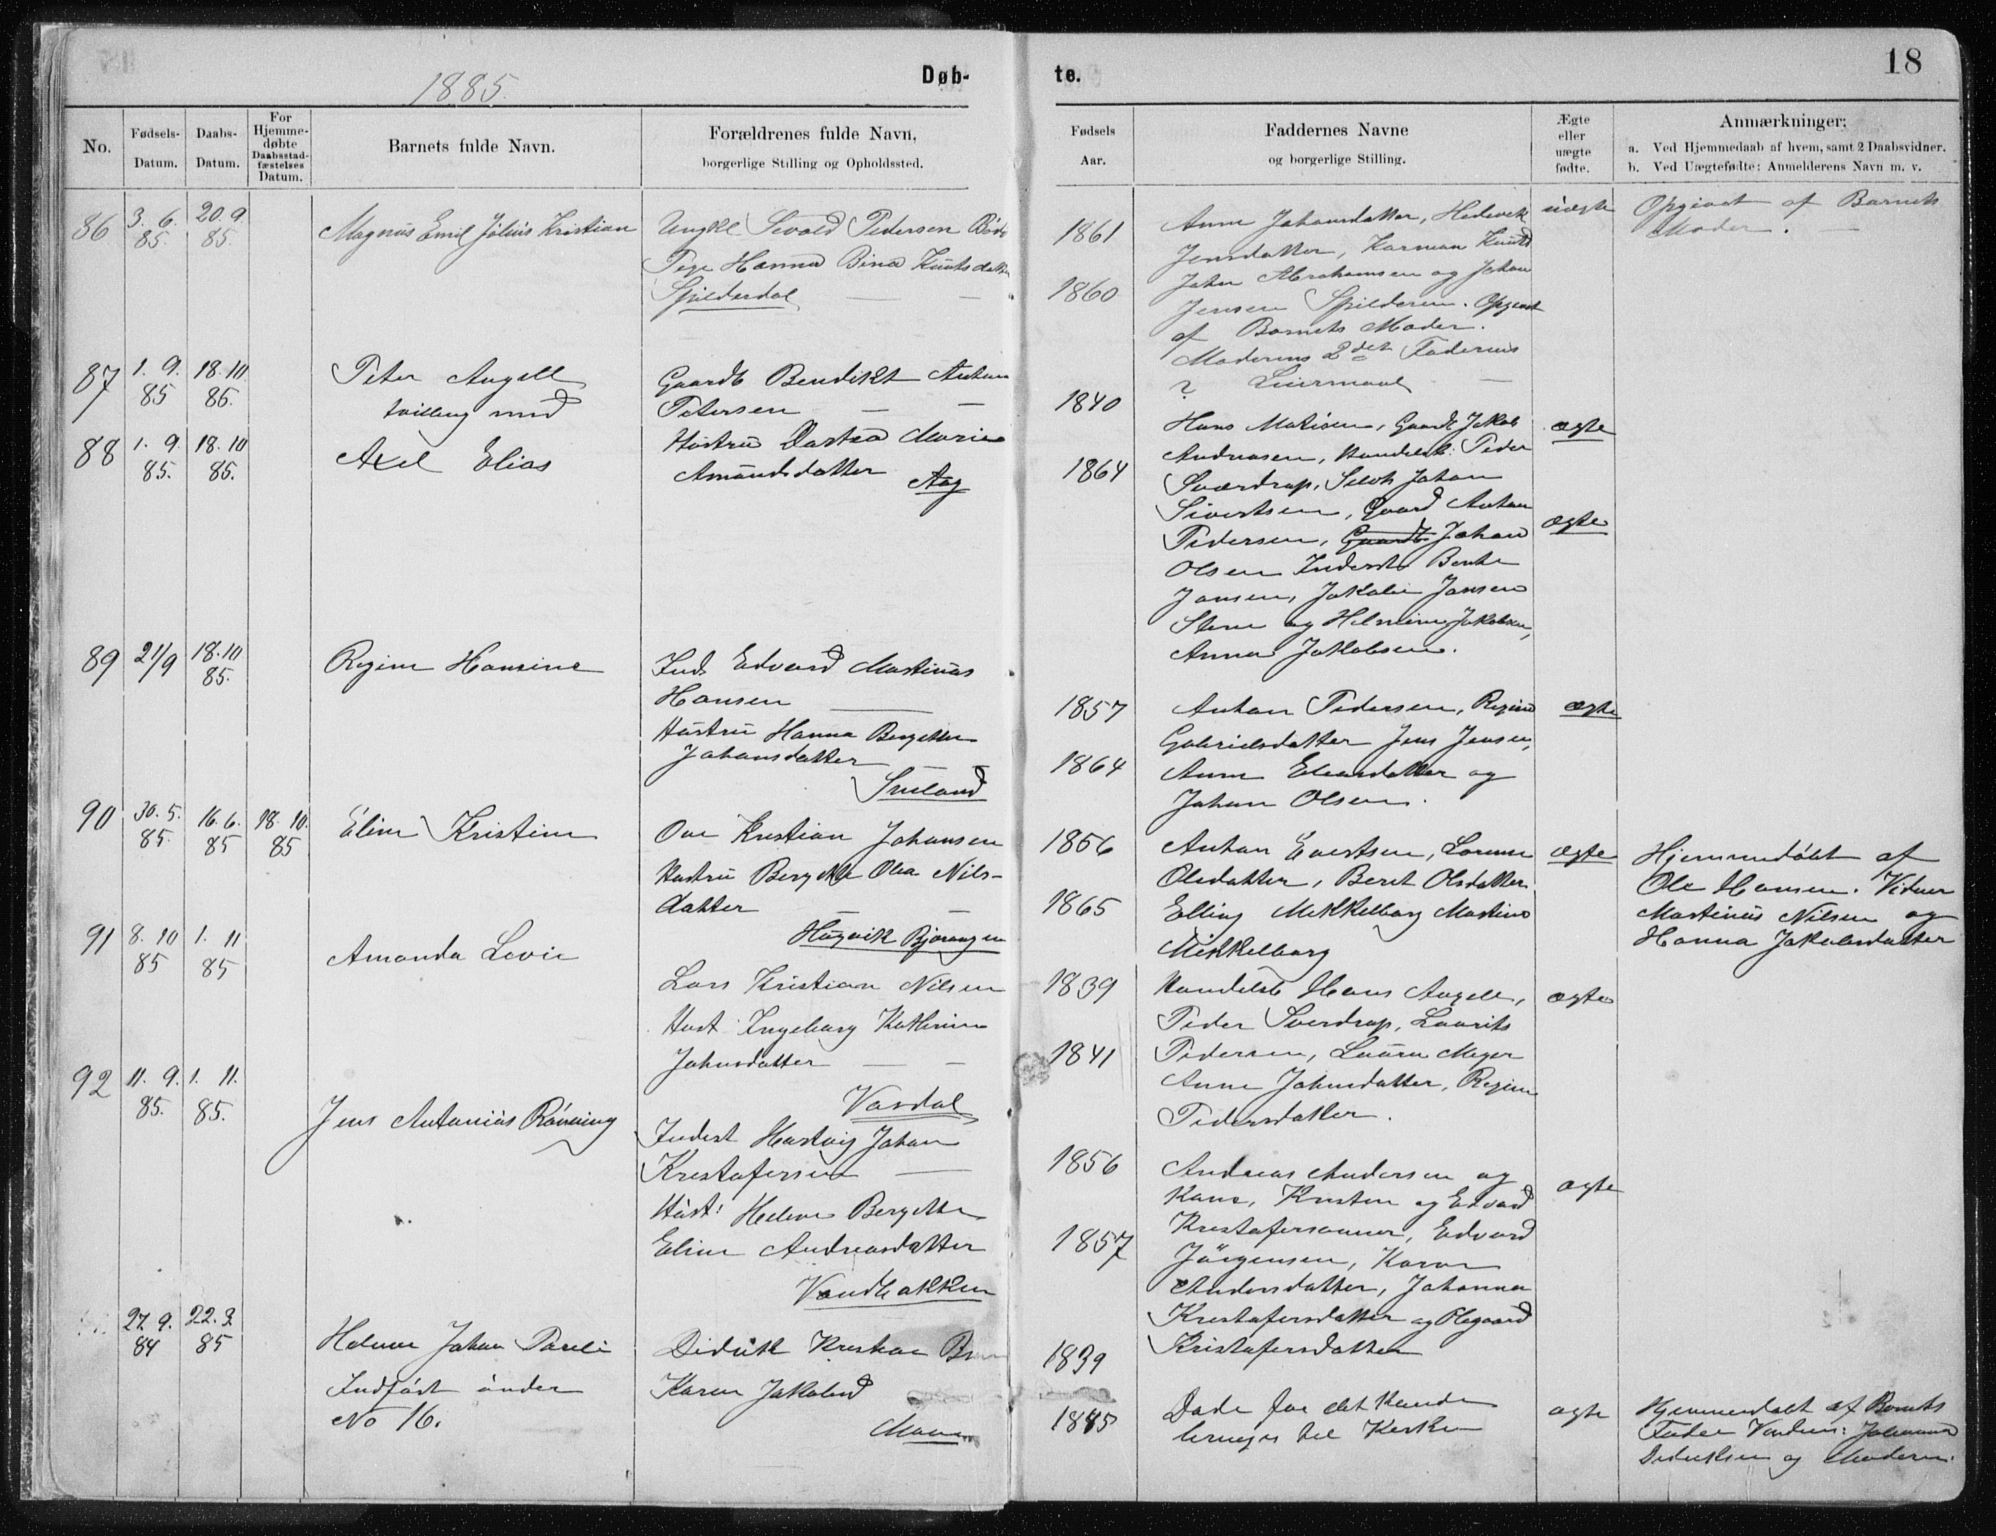 1885.
Døb-
No.
Fødsels-
Datum.
Daabs-
Datum.
For
Hjemme-
døbte
Daabsstad-
fæstelses
Datum.
Barnets fulde Navn.
Forældrenes fulde Navn,
borgerlige Stilling og Opholdssted.
86
3. 6.
85.
20. 9.
85.
Magnus Emil Julius Kristian
Ungkl. Sevald Pedersen Bodø
Pige Hanna Bina Knutsdatter
Spilderdal
87
1. 9.
85
18. 10
86.
Peter Angell
tvilling med
Gaardb Bendikt Anton
Petersen
88
1. 9.
85.
18. 10
85.
Axel Elias
Hustru Dortea Marie
Amundsdatter Aag
89
21/9
18. 10
85.
Regine Hansine
Ind. Edvard Martinus
Hansen
Hustru Hanna Bergette
Johansdatter
90
30. 5.
85.
16. 6.
85
18. 10.
85
Eline Kristine
Ove Kristian Johansen
Hustru Bergette Olea Nils-
datter
Bjerangen
91
8. 10
85
1. 11
85
Amanda Lovie
Lars Kristian Nilsen
Hust. Ingeborg Kathrine
Johnsdatter
Vasdal
92
11. 9.
85.
1. 11.
85.
Jens Antonius Rønning
Inderst Hartvig Johan
Kristofersen
Hust: Helene Bergette
Eline Andreasdatter
Vandbakken
27. 9.
84
22. 3.
85
Johan Pareli
Indført under
No 16.
Didrik Kristian
Karen Jakobine
te.
18
Fødsels
Aar.
Faddernes Navne
og borgerlige Stilling.
Ægte
eller
uægte
fødte.
Anmærkninger:
a. Ved Hjemmedaab af hvem, samt 2 Daabsvidner.
b. Ved Uægtefødte: Anmelderens Navn m. v.
1861
1860
Anne Johansdatter, Hedevik
Jensdatter, Karman Knuts
John Abrahamsen og Johan
Jensen Spilderen. Opgivet
af Barnets Moder.
Moderens 2det Faderens
? Leiermaal
uægte
Opgivet af Barnets
Moder.
1840
1864
Hans Matisen, Gaardb Jakob
Andreasen, Handelsb: Peder
Sverdrup, Johan
Sivertsen, Gaard Anton
Pedersen, Gaardb Johan
Olsen Inderst Bente
Jansen, Jakobin Jansen
Stene og Helmine Jakobsen,
Anna Jakobsen.
ægte
ægte
1857
1864
Anton Pedersen, Regine
Gabrielsdatter Jens Jensen,
Anne og
Johan Olsen.
ægte
1856
1865
Anton Evertsen, Lorense
Olsdatter, Beret Olsdatter.
Elling Mikkelborg Martine
Mikkelborg
ægte
Hjemmedøbt af
Ole Hansen. Vidner
Martinus Nilsen og
Hanna Jakobsdatter
1839
1841
Handelsb Hans Angell,
Peder Sverdrup, Laurits
Pedersen, Laura Meyer
Anne Johnsdatter, Regine
Pedersdatter.
ægte
1856
1857
Andreas Andersen og
Kone, Kristen og Edvard
Kristofersønner, Edvard
Jørgensen, Karen
Andersdatter, Johanna
Kristofersdatter og Olegaard
Kristofersdatter
ægte
1839
1845
Døde før det kunde
bringes til Kirken
ægte
Hjemmedøbt af Barnets
Fader Vidner: Johanna
Didriksen og Moderen.